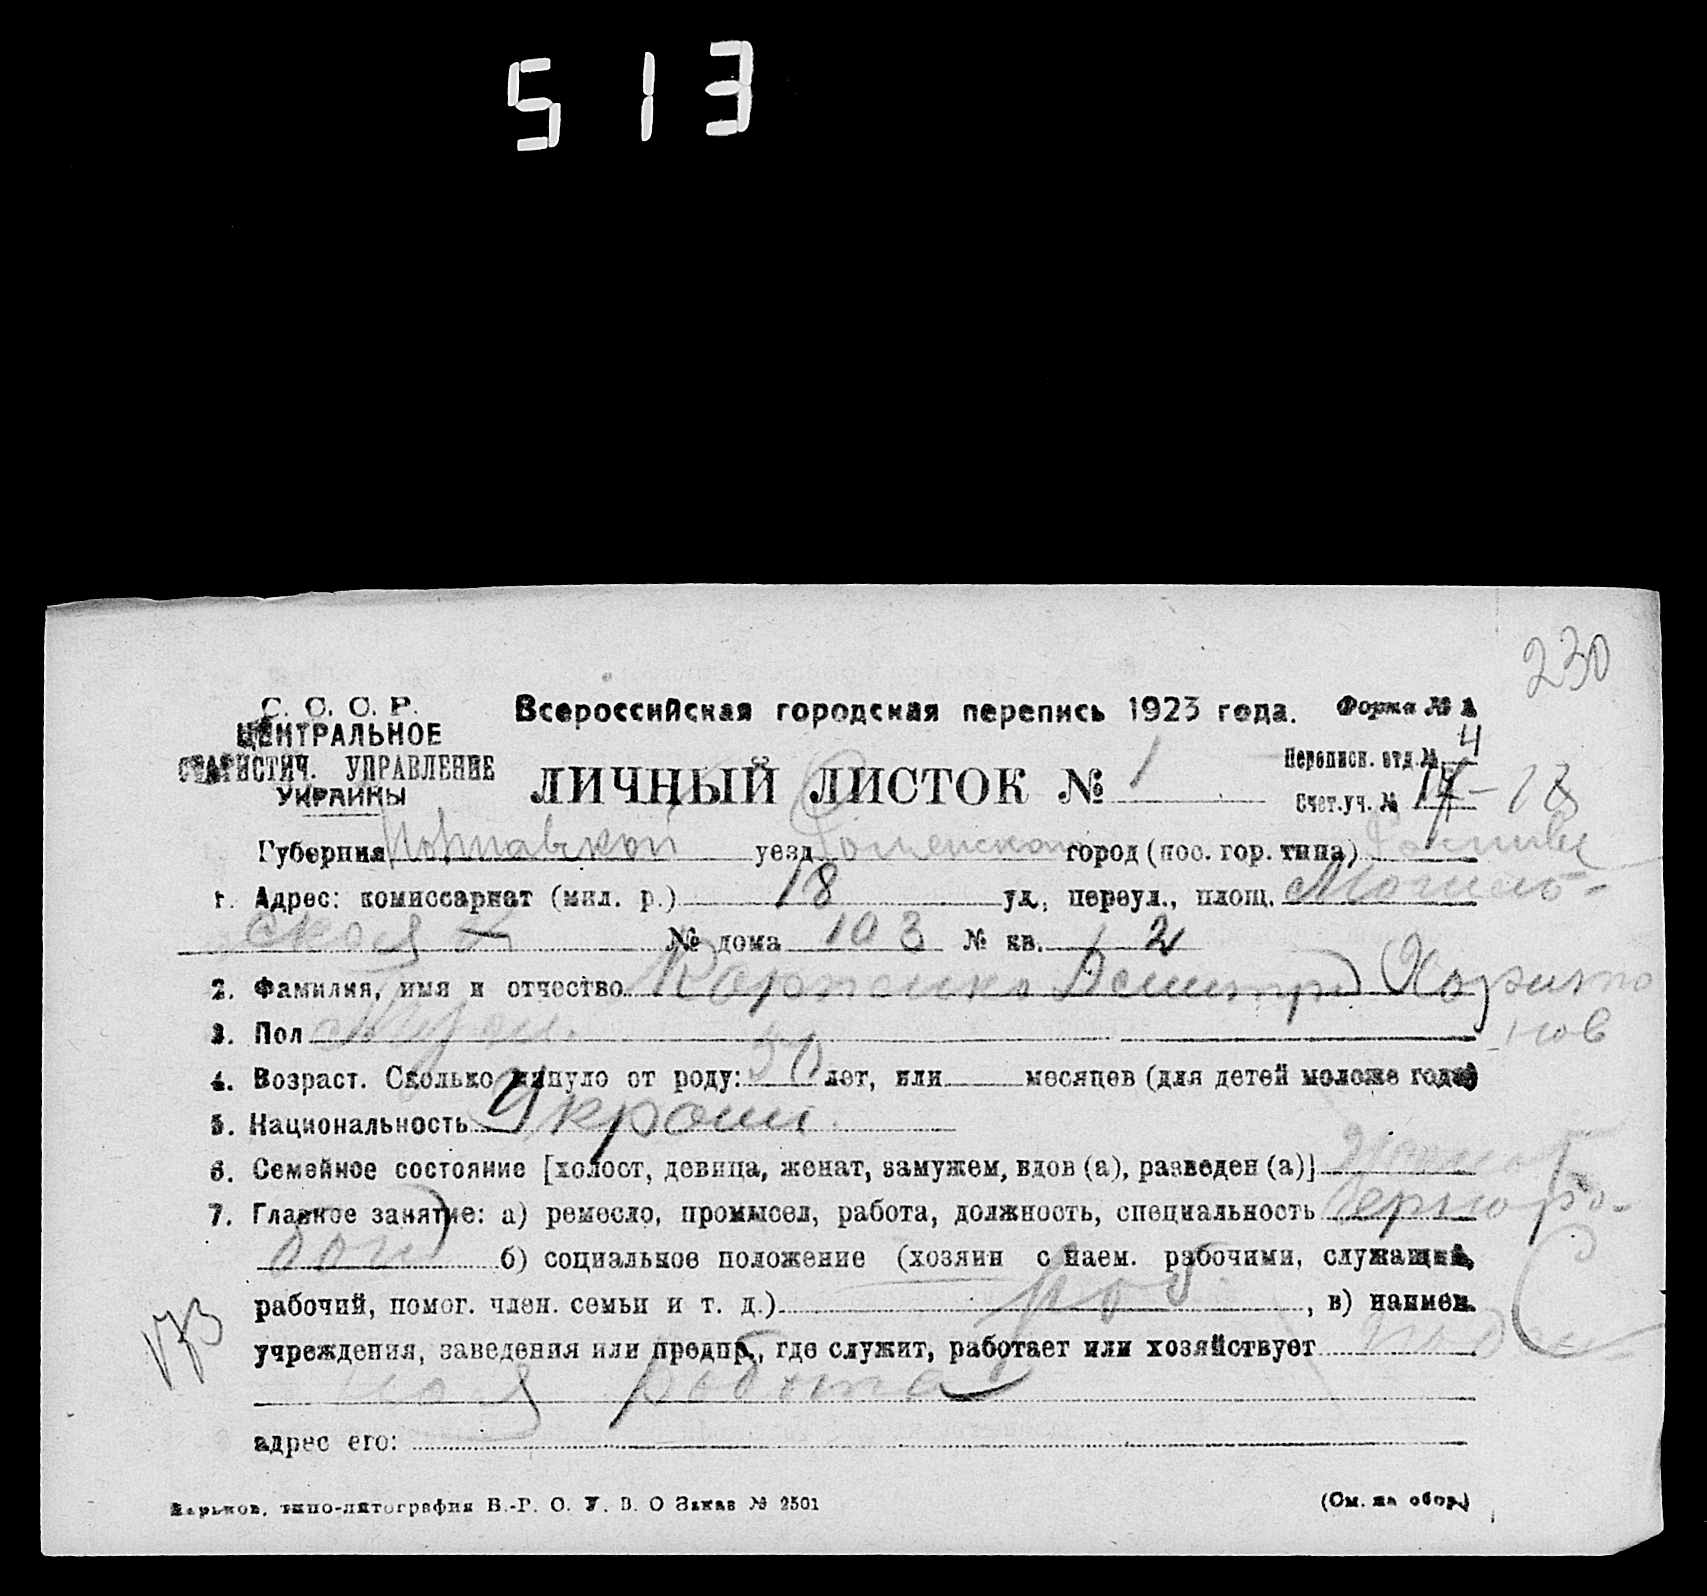 513
230
С. С. С. Р.
ЦЕНТРАЛЬНОЕ
СТАТИСТИЧ. УПРАВЛЕНИЕ
УКРАИНЫ
Всероссийская городская перепись 1923 года.
Форма № 1
ЛИЧНЫЙ ЛИСТОК № 1
Переписн. отд. № 4
Счет. уч. №
Губерния Полтавской уезд Роменском город (пос. гор. типа)
1. Адрес: комиссариат (мил. р.) 18 ул., переул., площ.
ская № дома 103 № кв. 2
2. Фамилия, имя и отчество Карпенко Дмитрий Харито
нов
3. Пол Муж.
4. Возраст. Сколько минуло от роду: 50 лет, или месяцев (для детей моложе года)
5. Национальность Украин.
6. Семейное состояние [холост, девица, женат, замужем, вдов (а), разведен (а)] Женат
7. Главное занятие: а) ремесло, промысел, работа, должность, специальность Чернора-
бочий б) социальное положение (хозяин с наем. рабочими, служащий,
рабочий, помог. член. семьи и т. д.) раб. , в) наимен.
учреждения, заведения или предпр., где служит, работает или хозяйствует поден-
ная работа
173
адрес его:
Харьков, типо-литография В.-Р. О. У. В. О Заказ № 2501
(См. на обор.)